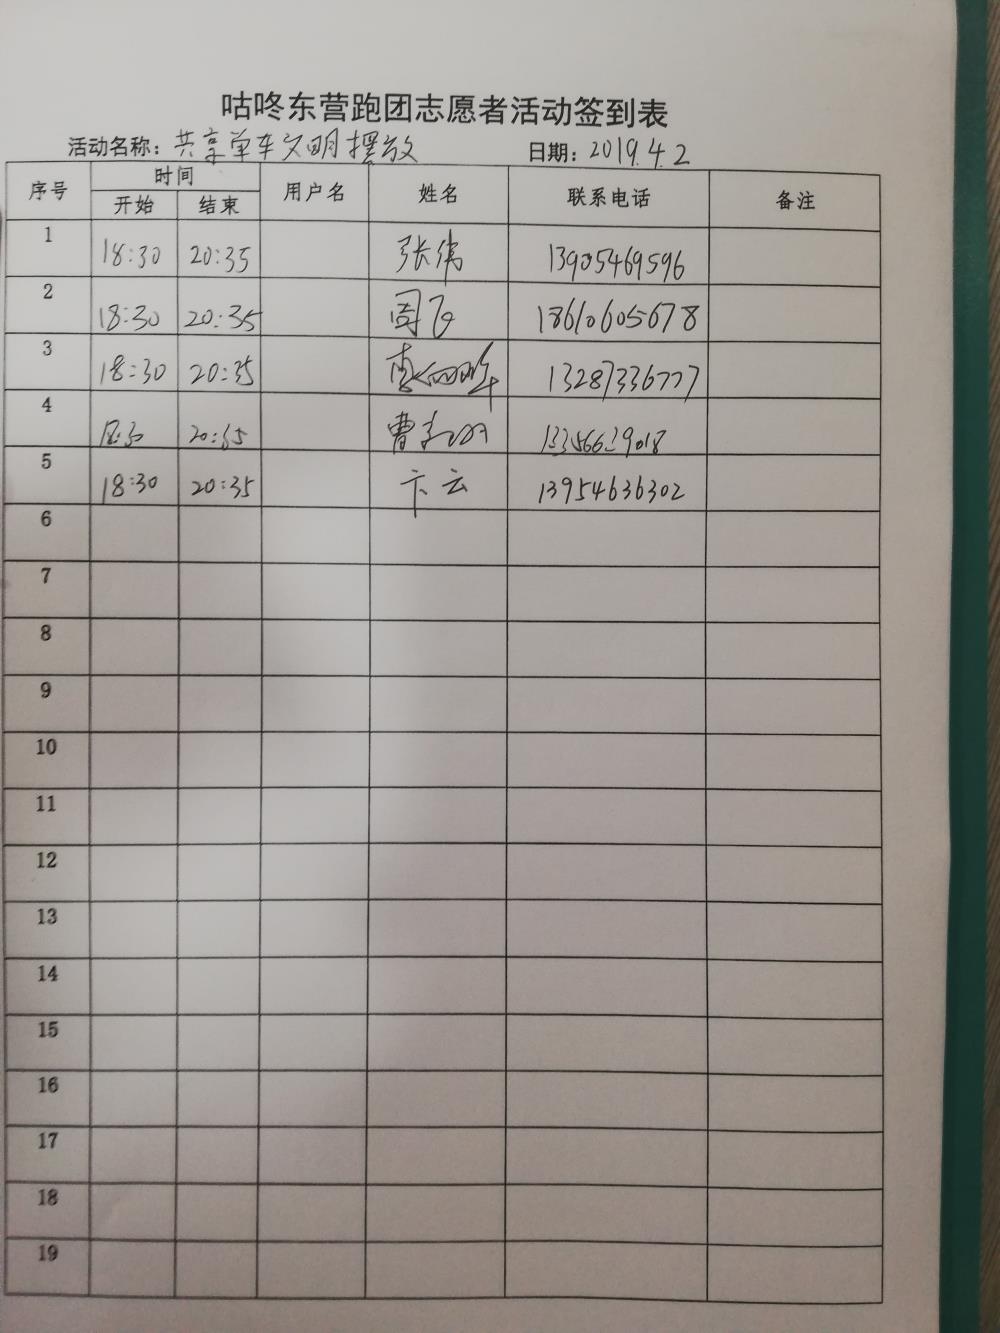 咕咚东营跑团志愿者活动签到表
活动名称：共享单车文明摆放 日期：2019.4.2
序号 时间 用户名 姓名 联系电话 备注
开始 结束
1 18:30 20:35 张伟 13905469596
2 18:30 20:35 周飞 18610605678
3 18:30 20:35 13287336777
4 20:35 曹 13356639018
5 18:30 20:35 卞云 13954636302
6
7
8
9
10
11
12
13
14
15
16
17
18
19